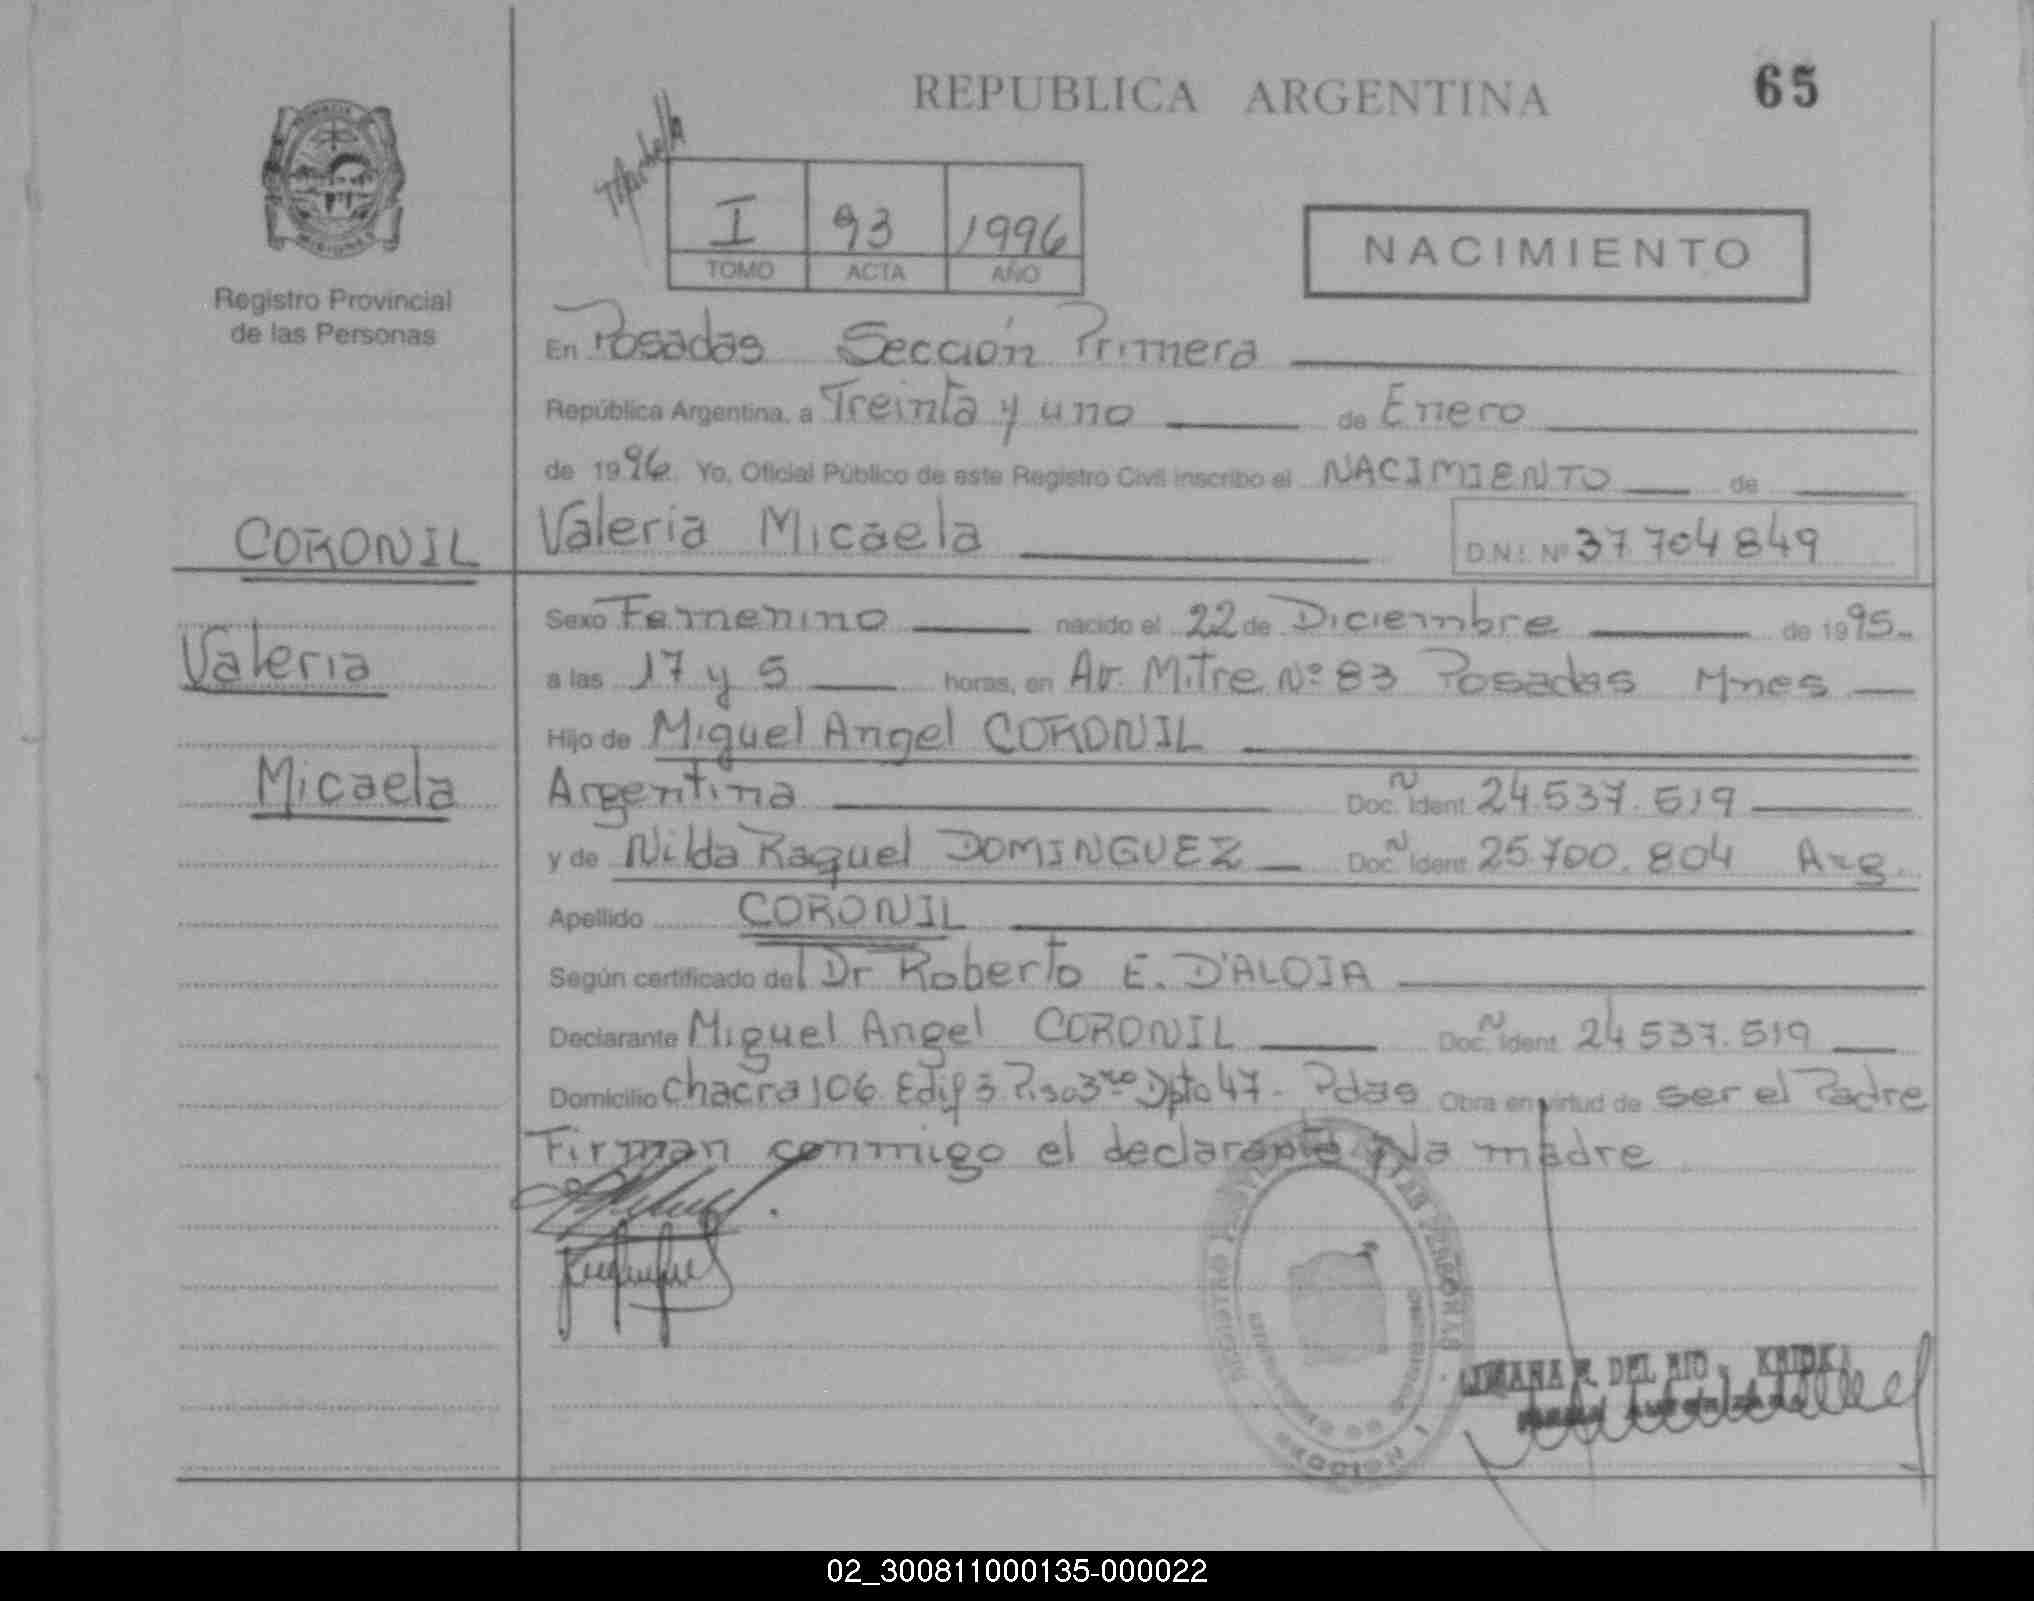 REPUBLICA ARGENTINA
65
PROVINCIA
MISIONES
Registro Provincial
de las Personas
I 93 1996
TOMO ACTA AÑO
NACIMIENTO
En Posadas Sección Primera
República Argentina, a Treinta y uno de Enero
de 1996. Yo, Oficial Público de este Registro Civil inscribo el NACIMIENTO de
CORONIL
Valeria
Micaela
Valeria Micaela D.N.I. Nº 37 704 849
Sexo Femenino nacido el 22 de Diciembre de 1995
a las 17 y 5 horas, en Av. Mitre Nº 83 Posadas Mnes
Hijo de Miguel Angel CORONIL
Argentina Doc. Ident 24.537.519
y de Nilda Raquel DOMINGUEZ Doc. Ident 25.700.804 Arg.
Apellido CORONIL
Según certificado del Dr Roberto E. D'ALOIA
Declarante Miguel Angel CORONIL Doc. Ident 24 537.519
Domicilio Chacra 106 Edif 3 Piso 3ro Dpto 47 - Pdas Obra en virtud de ser el Padre
Firman conmigo el declarante y la madre
REGISTRO DE LAS PERSONAS
SECCION 1
DEL RIO
02_300811000135-000022